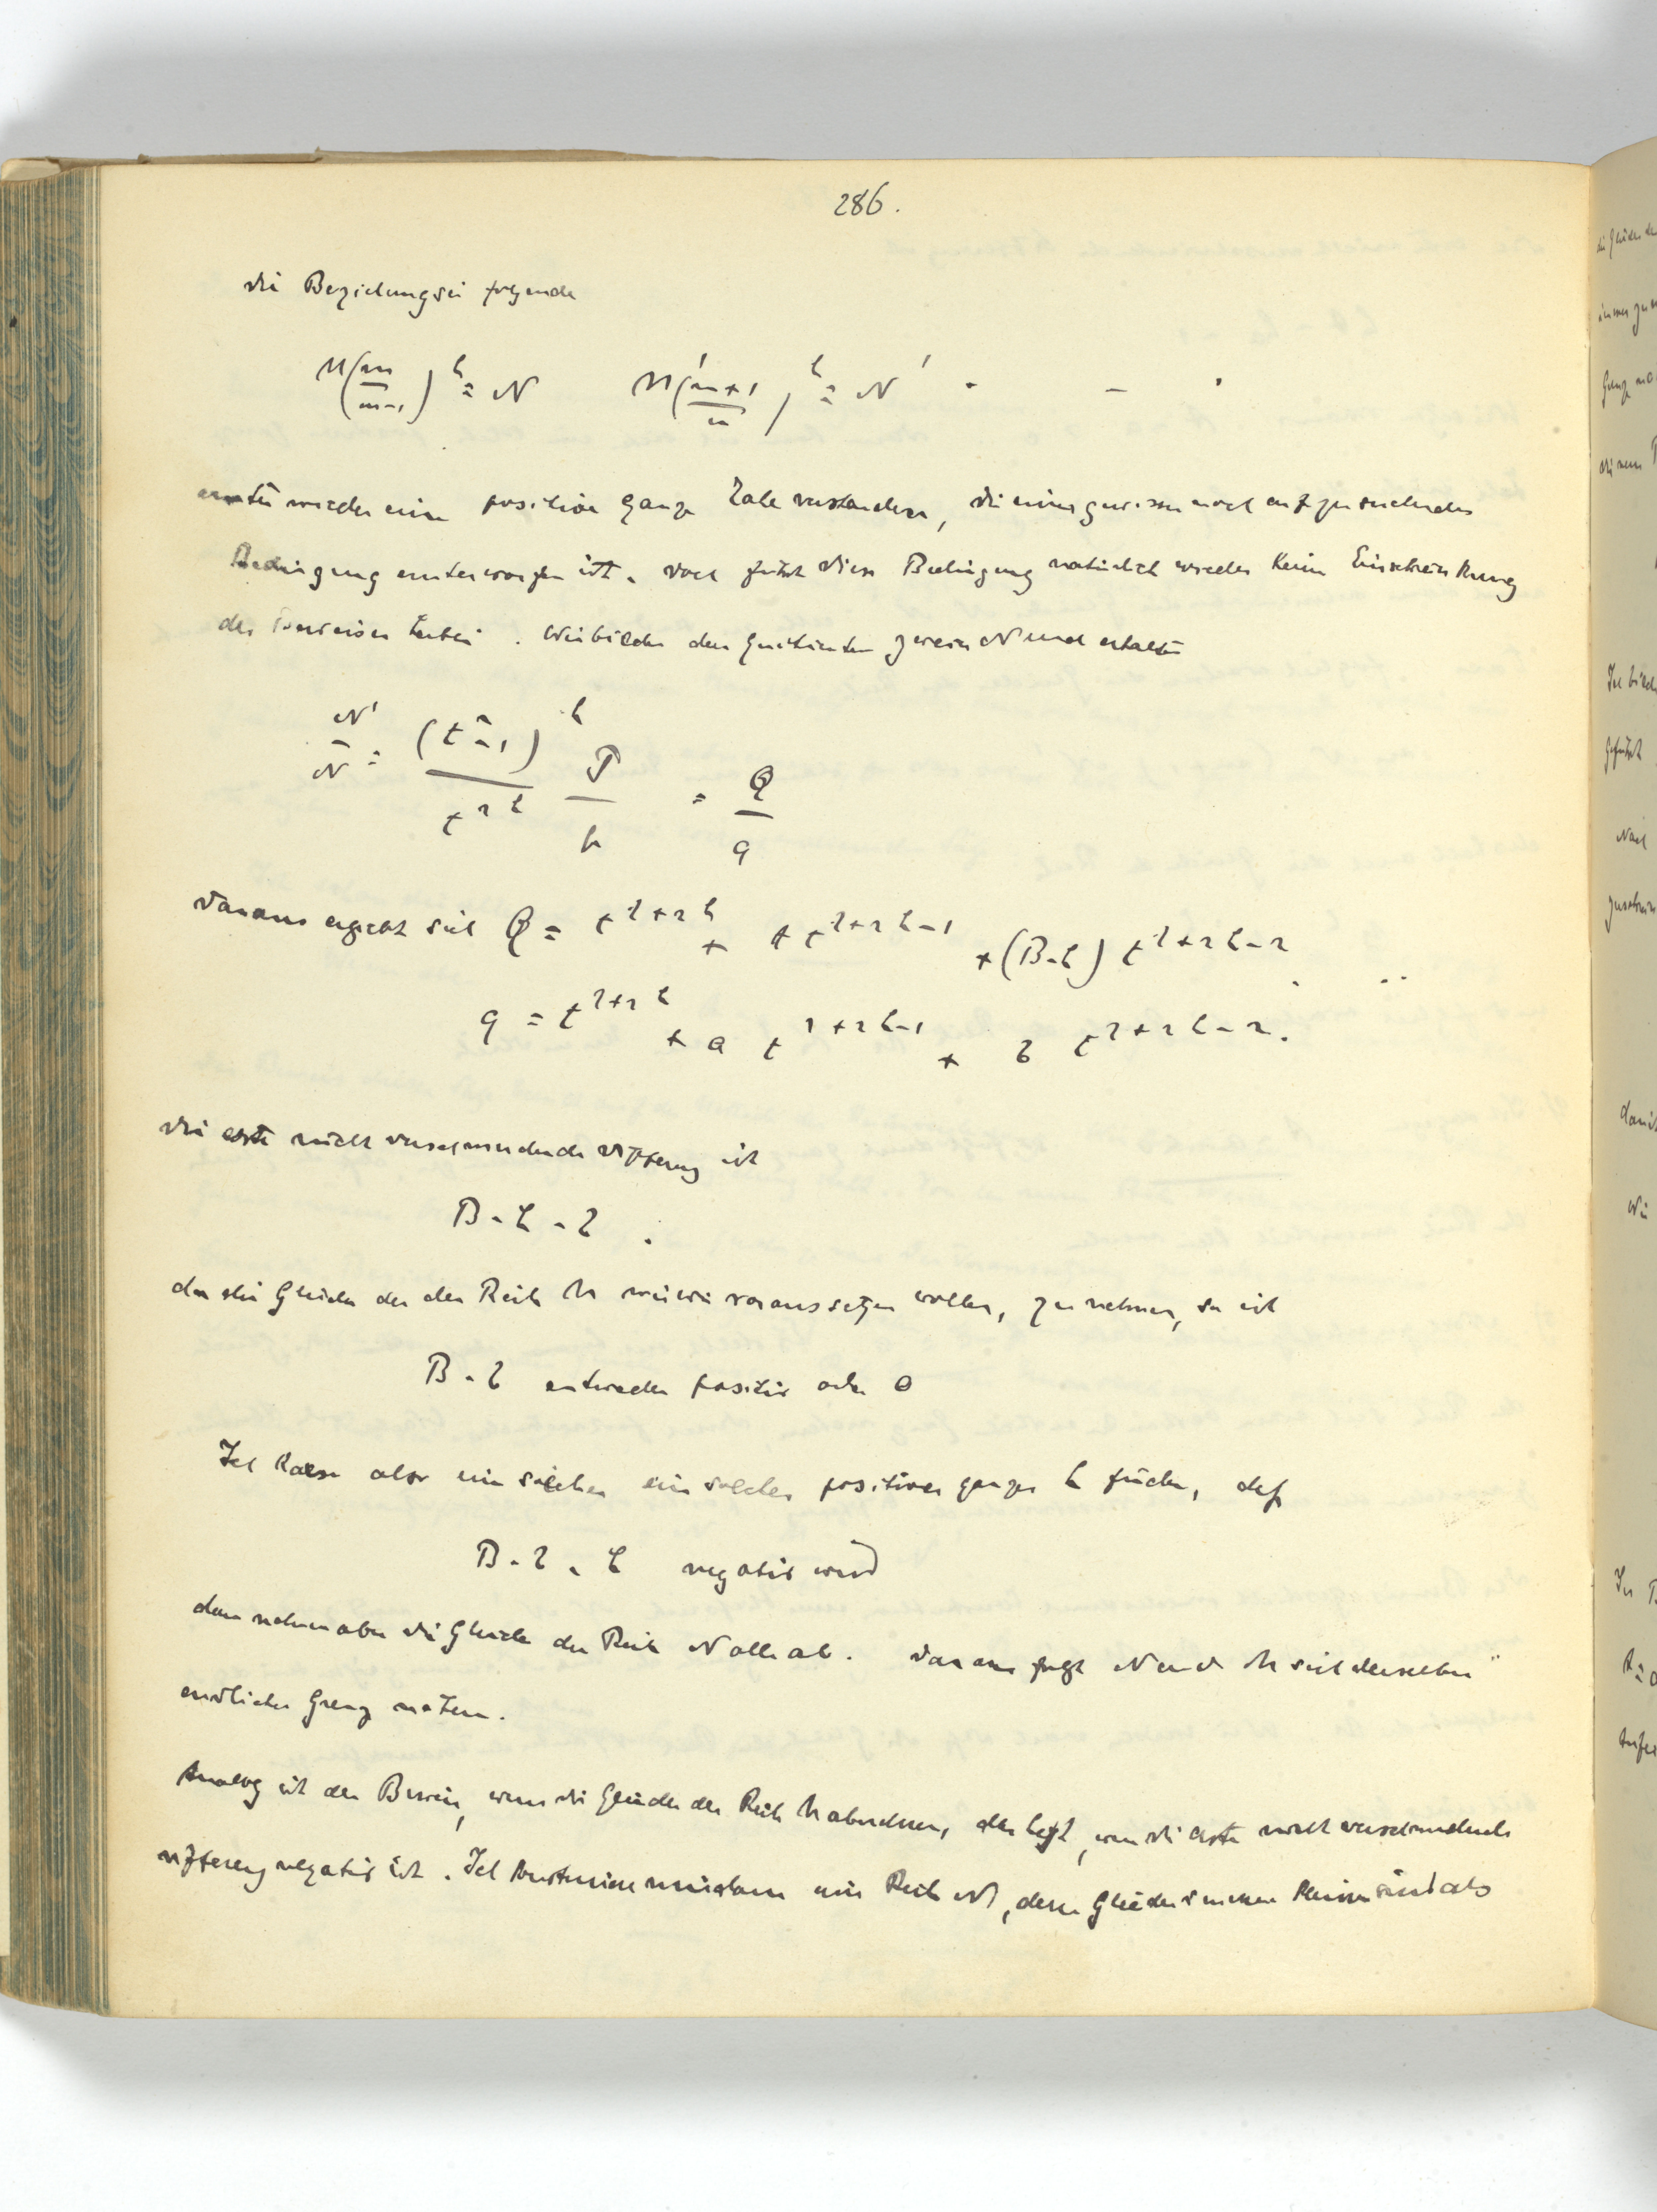 286.
die Beziehung sei folgende
M(m/m-1)^h = N   M'(m+1/m)^h = N' . – .
wieder eine positive ganze Zahl verstanden, die einer gewissen noch aufzusuchenden
Bedingung unterworfen ist. Doch führt diese Bedingung natürlich wieder keine Einschränkung
des Beweises herbei. Wir bilden den Quotienten zweier N und erhalten
N'/N = (t²-1)^h / t^{2h} P/p = Q/q
daraus ergiebt sich Q = t^{λ+2h} + A t^{λ+2h-1} + (B-h) t^{λ+2h-2} . ..
q = t^{λ+2h} + a t^{λ+2h-1} + b t^{λ+2h-2}.
die erste nicht verschwindende Differenz ist
B - h - b .
da die Glieder der Reihe M wie wir voraussetzen wollen, zunehmen, so ist
B - b entweder positiv oder 0
Ich kann also ein solches ein solches positives ganzes h finden, daß
B - b - h negativ wird
dann nehmen aber die Glieder der Reihe N alle ab. Daraus folgt N und M sich derselben
endlichen Grenze nähern.
Analog ist der Beweis, wenn die Glieder der Reihe M abnehmen, das heißt, wenn die erste nicht verschwindende
Differenz negativ ist. Ich konstruiere mir dann eine Reihe N, deren Glieder immer kleiner sind als